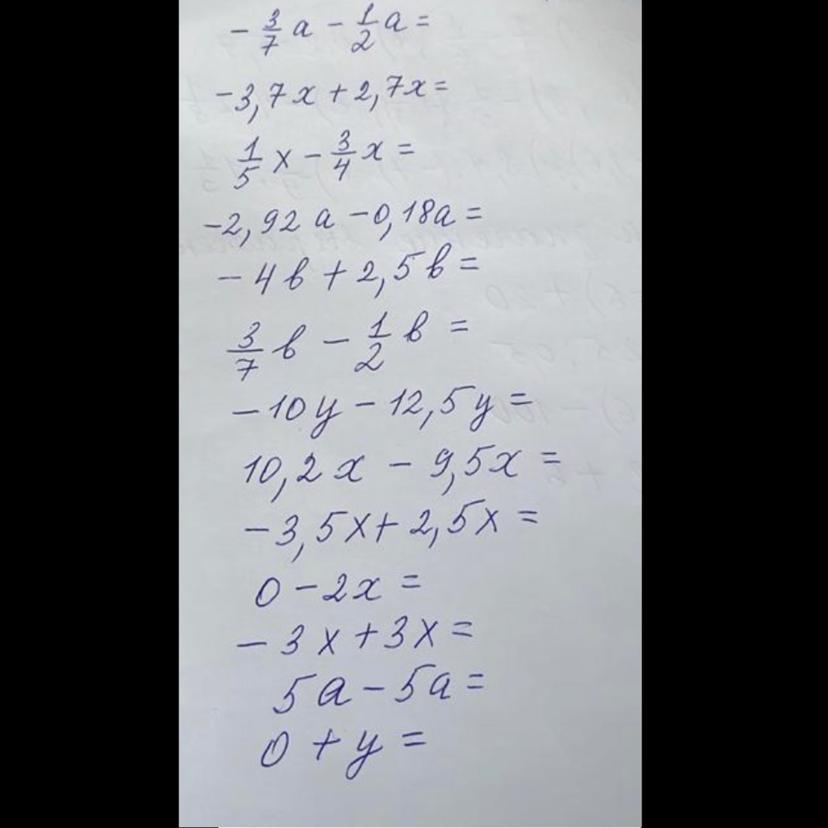 -3/7a - 1/2a =
-3,7x + 2,7x =
1/5x - 3/4x =
-2,92a - 0,18a =
-4в + 2,5в =
3/7в - 1/2в =
-10y - 12,5y =
10,2x - 9,5x =
-3,5x + 2,5x =
0 - 2x =
-3x + 3x =
5a - 5a =
0 + y =